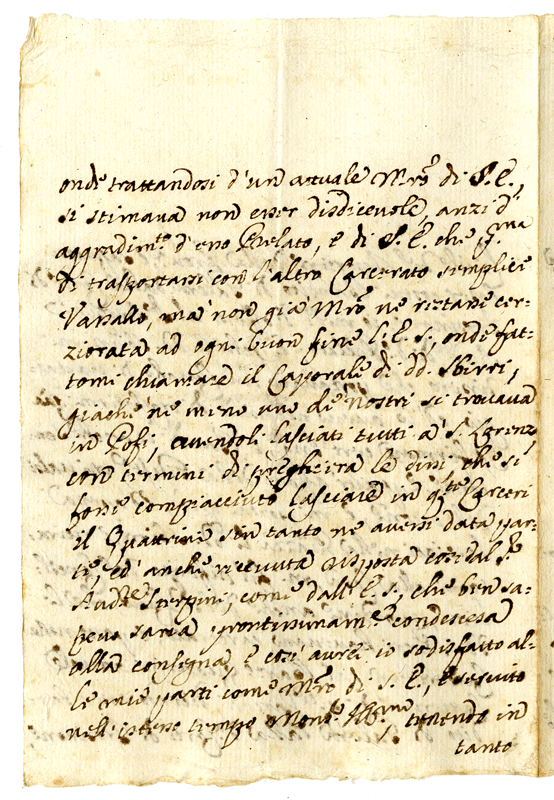 onde trattandosi d'un attuale Mro di S. E.,
si stimava non esser disdicevole, anzi d'
aggradimto d'esso Prelato, e di S. E. che pma
di trasportarsi con l'altro Carcerato semplice
Vassallo, ma non già Mro ne restasse cer-
ziorata ad ogni buon fine l'E. S., onde fat-
tomi chiamare il Caporale di dd. Sbirri,
giache ne meno uno de nostri si trovava
in Pofi, avendoli lasciati tutti a S. Lorenzo,
con termini di preghiera le dissi, che si
fosse compiacciuto lasciare in qte Carceri
il Quattrini sin tanto ne avessi data par-
te, ed anche ricevuta risposta così dal Sr
Audre Sterpini, come dall'E. S., che ben sa-
pevo saria prontissimamte condescesa
alla consegna, e così avrei io sodisfatto al-
le mie parti come Mro di S. E., e servito
nell'istesso tempo Monsr Illmo, tenendo in
tanto